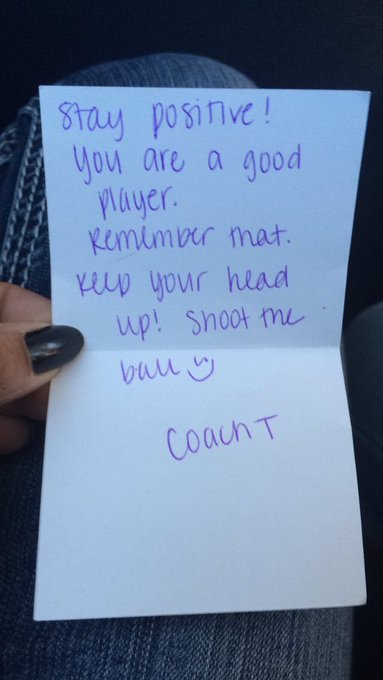 Stay positive!
You are a good
player.
Remember that.
Keep your head
up! Shoot the
ball
Coach T